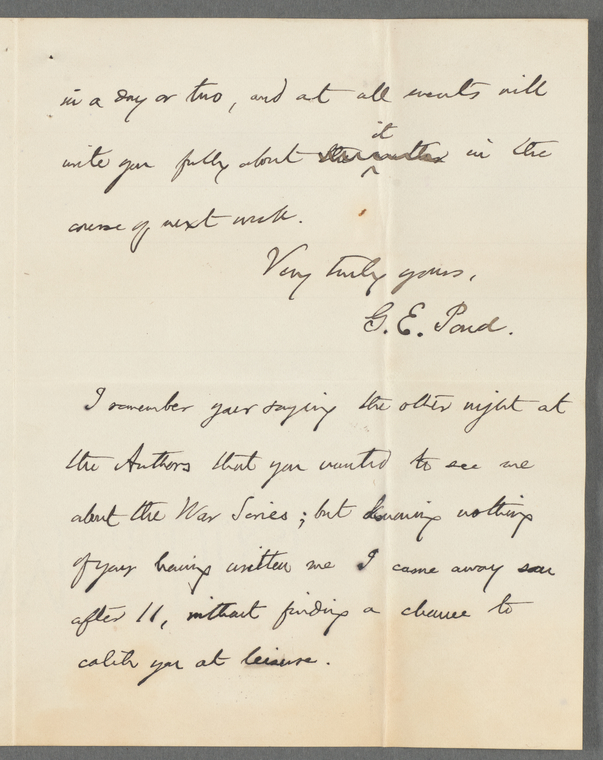 in a day or two, and at all events will
write you fully about the matter it in the
course of next week.
Very truly yours,
G. E. Pond.
I remember your saying the other night at
the Authors that you wanted to see me
about the War Series; but knowing nothing
of your having written me I came away soon
after 11, without finding a chance to
catch you at leisure.